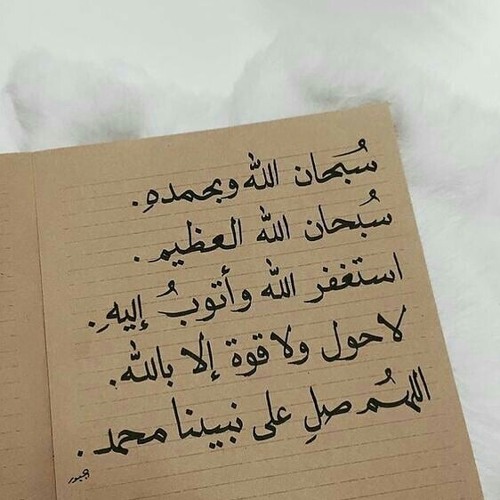 سُبحان الله وبحمدهِ.
سُبحان الله العظيم.
استغفر الله وأتوبُ إليهِ.
لا حول ولا قوة إلا بالله.
اللهُم صلِ على نبينا محمد.